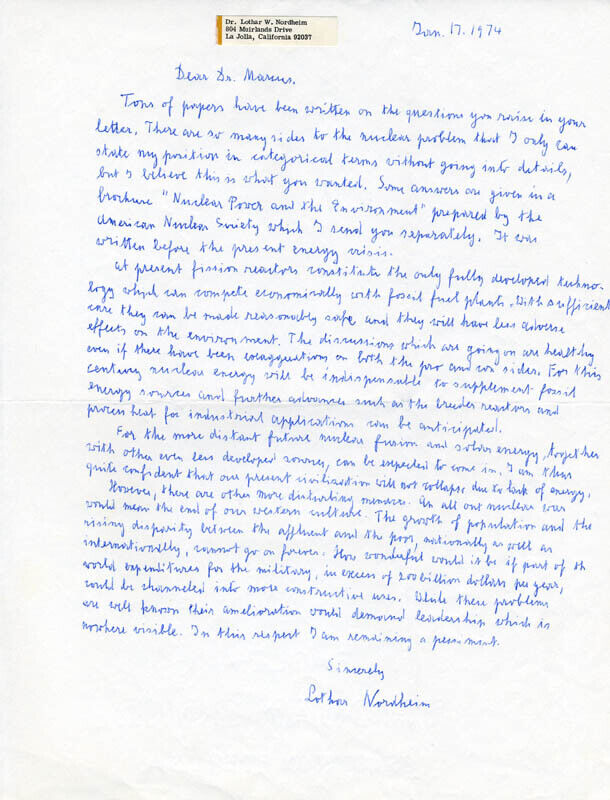 Dr. Lothar W. Nordheim
804 Muirlands Drive
La Jolla, California 92037
Jan. 17. 1974
Dear Dr. Marcus.
Tons of papers have been written on the questions you raise in your
letter. There are so many sides to the nuclear problem that I only can
state my position in categorical terms without going into details,
but I believe this is what you wanted. Some answers are given in a
brochure "Nuclear Power and the Environment" prepared by the
American Nuclear Society which I send you separately. It was
written before the present energy crisis.
At present fission reactors constitute the only fully developed techno-
logy which can compete economically with fossil fuel plants. With sufficient
care they can be made reasonably safe and they will have less adverse
effects on the environment. The discussions which are going on are healthy
even if there have been exaggerations on both the pro and con sides. For this
century nuclear energy will be indispensable to supplement fossil
energy sources and further advances such as the breeder reactors and
process heat for industrial applications can be anticipated.
For the more distant future nuclear fusion and solar energy, together
with other even less developed sources, can be expected to come in. I am thus
quite confident that our present civilization will not collapse due to lack of energy.
However, there are other more disturbing menaces. An all out nuclear war
would mean the end of our western culture. The growth of population and the
rising disparity between the affluent and the poor, nationally as well as
internationally, cannot go on forever. How wonderful would it be if part of th
world expenditures for the military, in excess of 200 billion dollars per year,
could be channeled into more constructive uses. While these problems
are well known their amelioration would demand leadership which is
nowhere visible. In this respect I am remaining a pessimist.
Sincerely
Lothar Nordheim